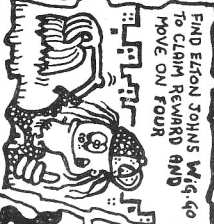 FIND ELTON JOHNS WIG-GO
TO CLAIM REWARD AND
MOVE ON FOUR